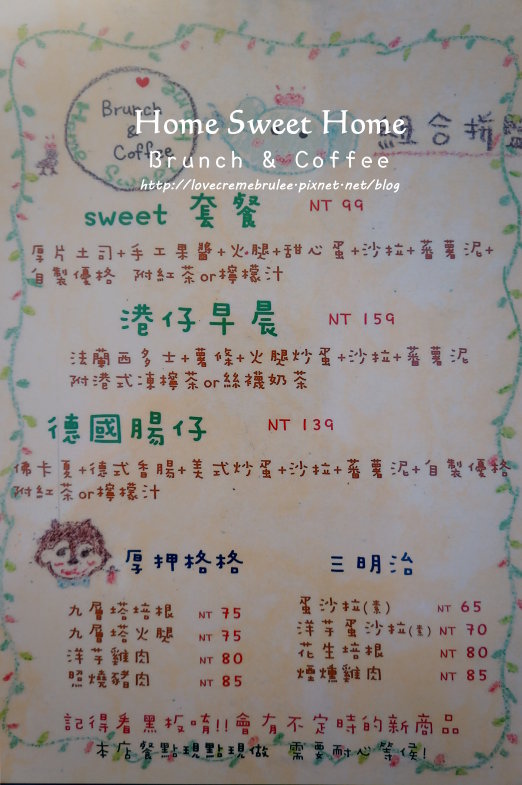 Brunch
&
Coffee
Home Sweet Home
Brunch & Coffee
http://lovecremebrulee.pixnet.net/blog
組合拼盤
sweet 套餐 NT 99
厚片土司+手工果醬+火腿+甜心蛋+沙拉+蕃薯泥+
自製優格 附紅茶or檸檬汁
港仔早晨 NT 159
法蘭西多士+薯條+火腿炒蛋+沙拉+蕃薯泥
附港式凍檸茶or絲襪奶茶
德國腸仔 NT 139
佛卡夏+德式香腸+美式炒蛋+沙拉+蕃薯泥+自製優格
附紅茶or檸檬汁
厚押格格
九層塔培根 NT 75
九層塔火腿 NT 75
洋芋雞肉 NT 80
照燒豬肉 NT 85
三明治
蛋沙拉(素) NT 65
洋芋蛋沙拉(素) NT 70
花生培根 NT 80
煙燻雞肉 NT 85
記得看黑板唷!!會有不定時的新商品
本店餐點現點現做 需要耐心等侯!